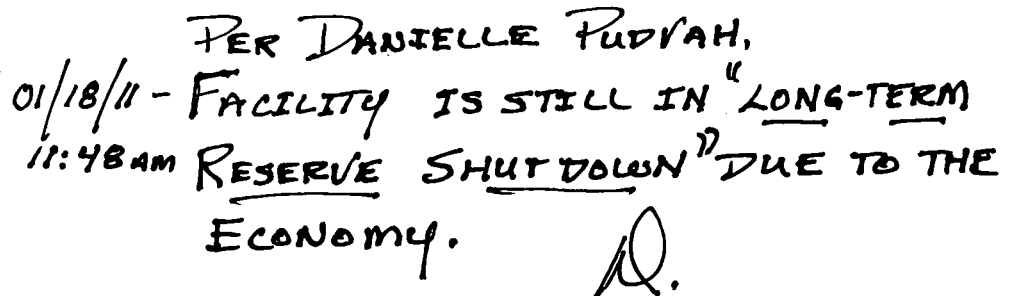 PER DANIELLE PUDVAH,
01/18/11 - FACILITY IS STILL IN "LONG-TERM
11:48 AM RESERVE SHUT DOWN" DUE TO THE
ECONOMY.